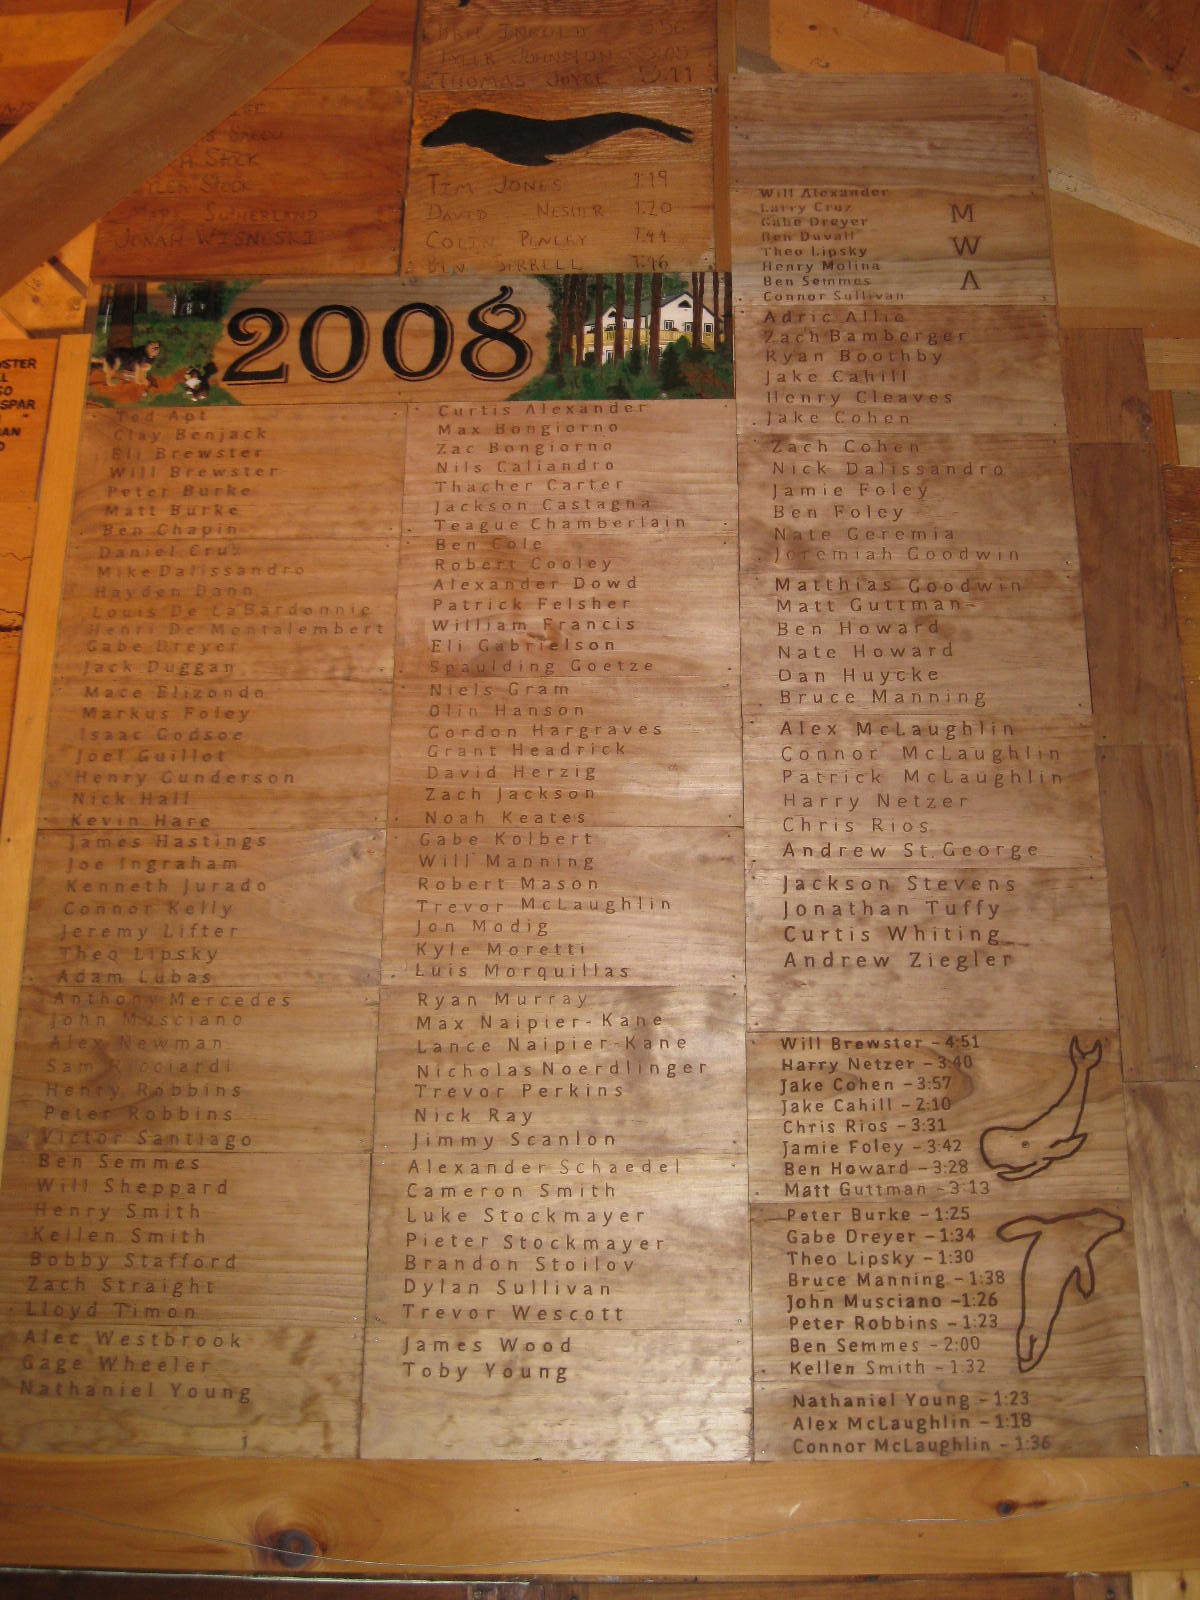 TYLER JOHNSTON 3:05
THOMAS JOYCE 3:11
STOCK
TYLER STOCK
MARK SUTHERLAND
JONAH WISNESKI
TIM JONES 1:19
DAVID NESHER 1:20
COLIN PENLEY 1:44
BEN SIRRELL 1:46
OSTER
SPAR
2008
Ted Apt
Clay Benjack
Eli Brewster
Will Brewster
Peter Burke
Matt Burke
Ben Chapin
Daniel Cruz
Mike Dalissandro
Hayden Dann
Louis De LaBardonnie
Henri De Montalembert
Gabe Dreyer
Jack Duggan
Mace Elizondo
Markus Foley
Isaac Godsoe
Joel Guillot
Henry Gunderson
Nick Hall
Kevin Hare
James Hastings
Joe Ingraham
Kenneth Jurado
Connor Kelly
Jeremy Lifter
Theo Lipsky
Adam Lubas
Anthony Mercedes
John Musciano
Alex Newman
Sam Ricciardi
Henry Robbins
Peter Robbins
Victor Santiago
Ben Semmes
Will Sheppard
Henry Smith
Kellen Smith
Bobby Stafford
Zach Straight
Lloyd Timon
Alec Westbrook
Gage Wheeler
Nathaniel Young
Curtis Alexander
Max Bongiorno
Zac Bongiorno
Nils Caliandro
Thacher Carter
Jackson Castagna
Teague Chamberlain
Ben Cole
Robert Cooley
Alexander Dowd
Patrick Felsher
William Francis
Eli Gabrielson
Spaulding Goetze
Niels Gram
Olin Hanson
Gordon Hargraves
Grant Headrick
David Herzig
Zach Jackson
Noah Keates
Gabe Kolbert
Will Manning
Robert Mason
Trevor McLaughlin
Jon Modig
Kyle Moretti
Luis Morquillas
Ryan Murray
Max Naipier-Kane
Lance Naipier-Kane
Nicholas Noerdlinger
Trevor Perkins
Nick Ray
Jimmy Scanlon
Alexander Schaedel
Cameron Smith
Luke Stockmayer
Pieter Stockmayer
Brandon Stoilov
Dylan Sullivan
Trevor Wescott
James Wood
Toby Young
Will Alexander
Larry Cruz
Gabe Dreyer
Ben Duvall
Theo Lipsky
Henry Molina
Ben Semmes
Connor Sullivan
M
W
A
Adric Allie
Zach Bamberger
Ryan Boothby
Jake Cahill
Henry Cleaves
Jake Cohen
Zach Cohen
Nick Dalissandro
Jamie Foley
Ben Foley
Nate Geremia
Jeremiah Goodwin
Matthias Goodwin
Matt Guttman
Ben Howard
Nate Howard
Dan Huycke
Bruce Manning
Alex McLaughlin
Connor McLaughlin
Patrick McLaughlin
Harry Netzer
Chris Rios
Andrew St.George
Jackson Stevens
Jonathan Tuffy
Curtis Whiting
Andrew Ziegler
Will Brewster - 4:51
Harry Netzer - 3:40
Jake Cohen - 3:57
Jake Cahill - 2:10
Chris Rios - 3:31
Jamie Foley - 3:42
Ben Howard - 3:28
Matt Guttman - 3:13
Peter Burke - 1:25
Gabe Dreyer - 1:34
Theo Lipsky - 1:30
Bruce Manning - 1:38
John Musciano - 1:26
Peter Robbins - 1:23
Ben Semmes - 2:00
Kellen Smith - 1:32
Nathaniel Young - 1:23
Alex McLaughlin - 1:18
Connor McLaughlin - 1:36